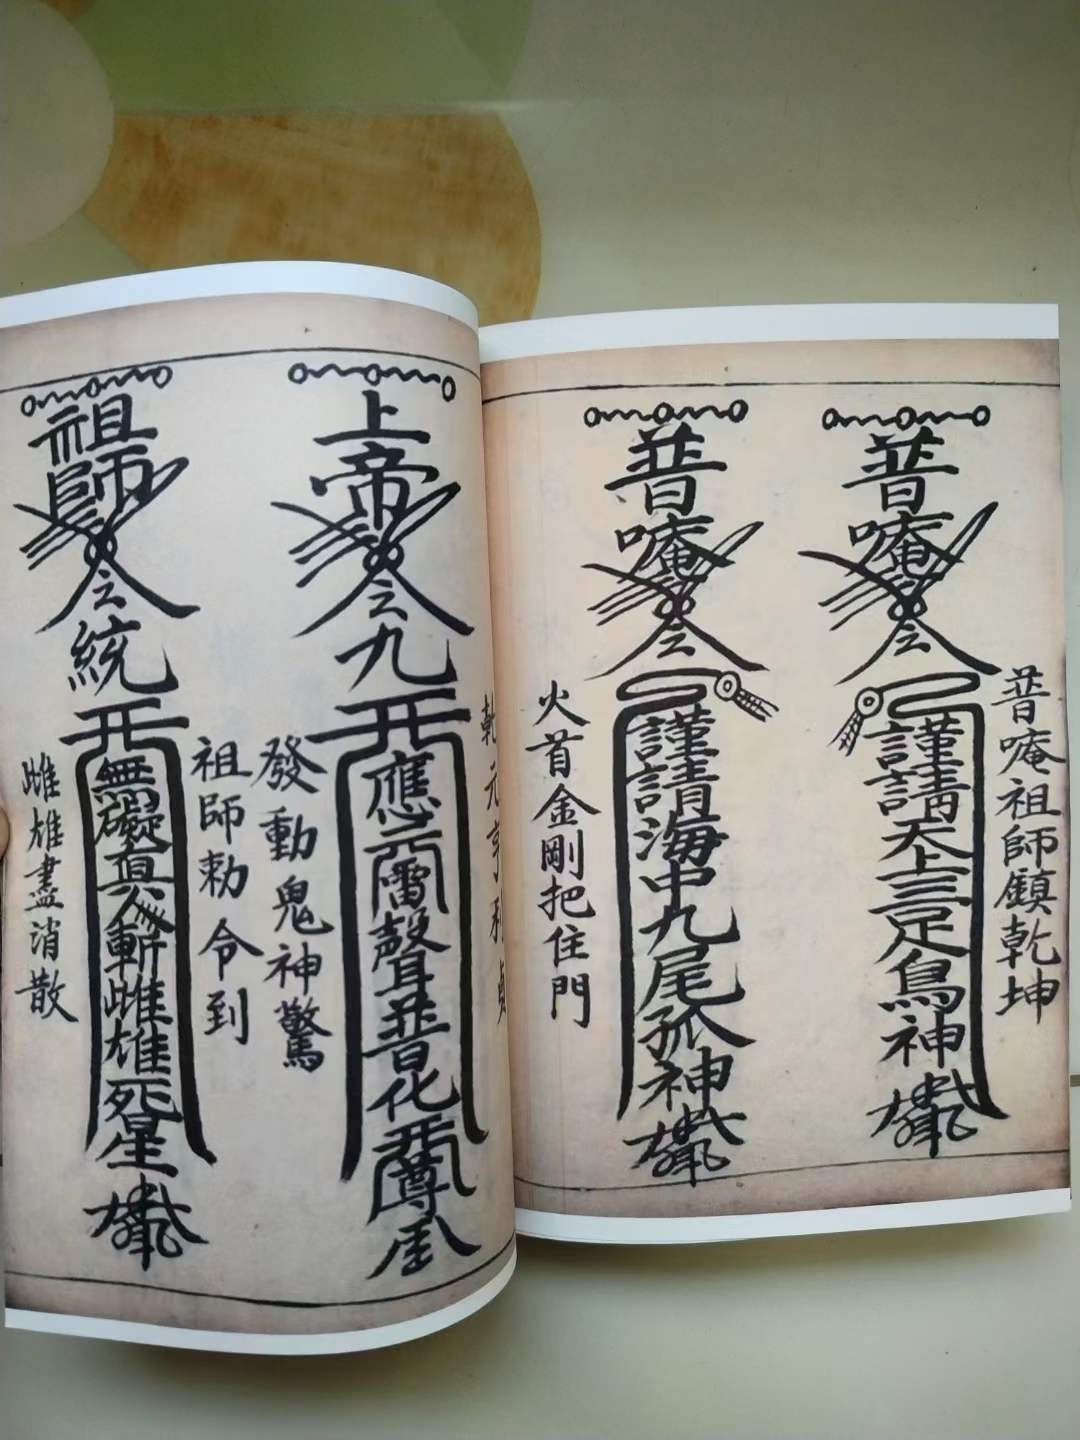 普唵祖師鎮乾坤
普唵
謹請天上三足鳥神
普唵
謹請海中九尾孤神
火首金剛把住門
乾元亨利貞
上帝
九
應元雷聲普化天尊
發動鬼神驚
祖師敕令到
祖師
統
無礙真人斬雌雄死星
雌雄盡消散